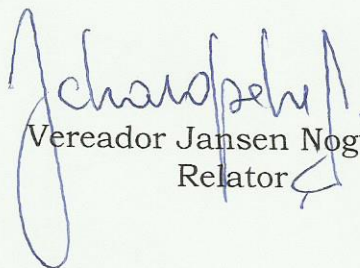 Vereador Jansen Nog
Relator